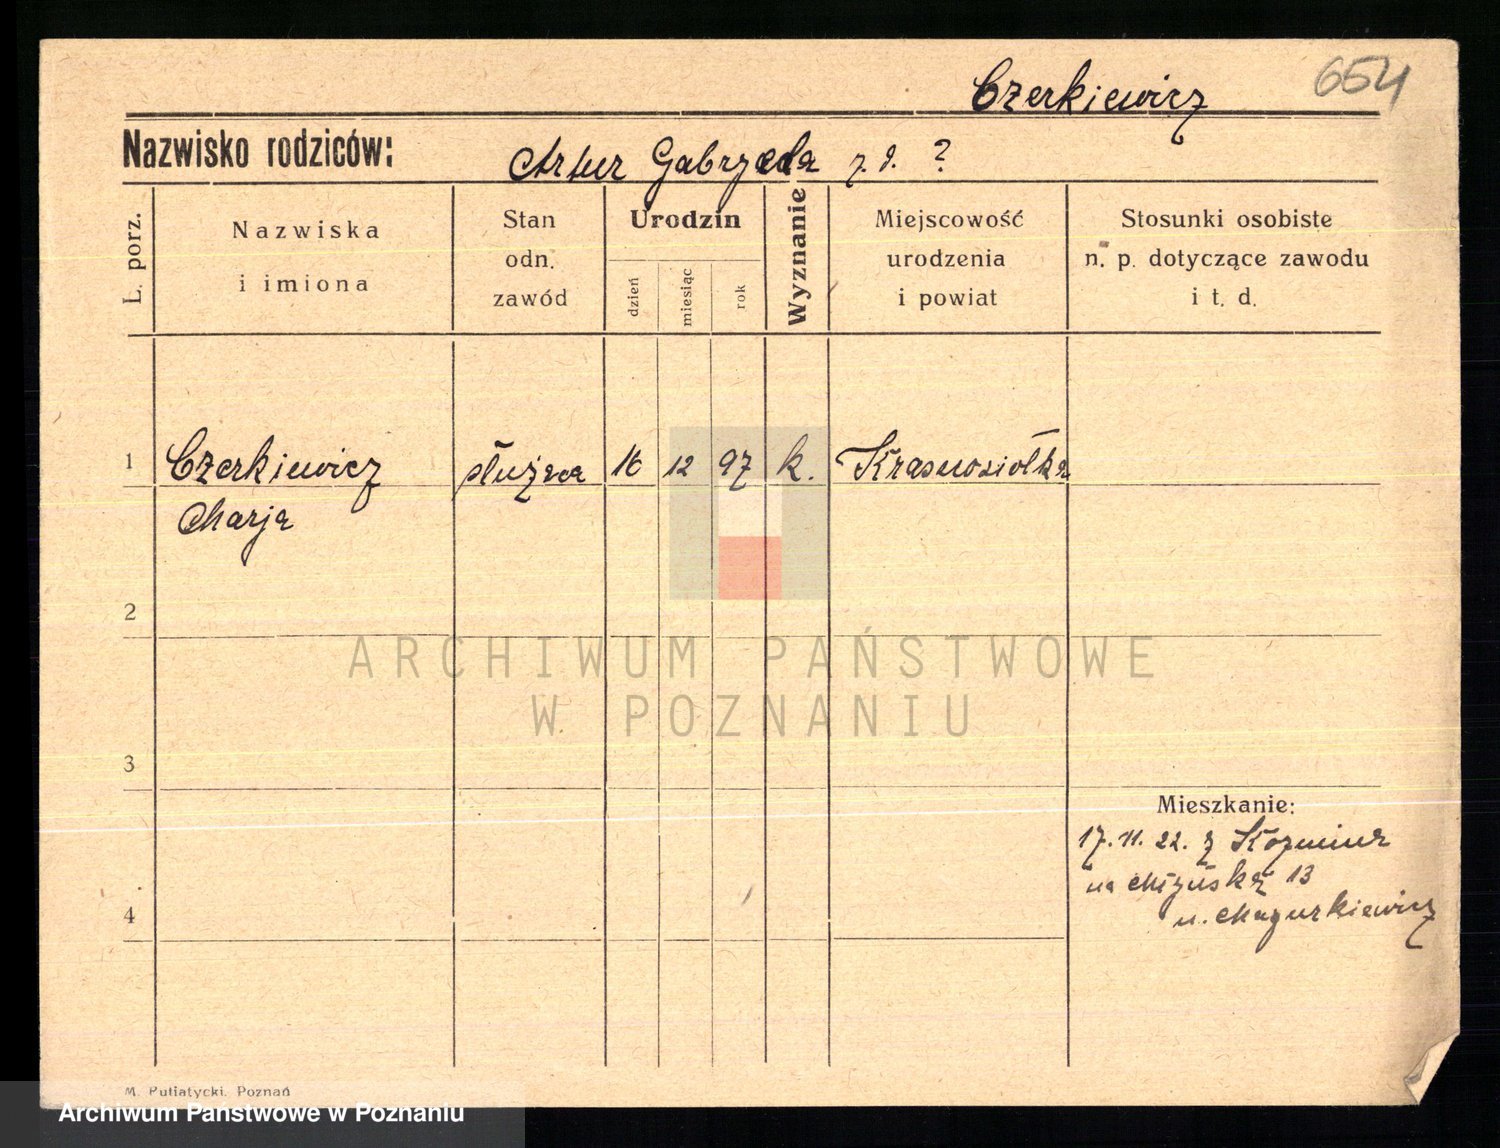 Czerkiewicz 654
Nazwisko rodziców: Artur Gabryela z. d. ?
L. porz.
Nazwiska
i imiona
Stan
odn.
zawód
Urodzin
dzień
miesiąc
rok
Wyznanie
Miejscowość
urodzenia
i powiat
Stosunki osobiste
n. p. dotyczące zawodu
i t. d.
1 Czerkiewicz służąca 16 12 97 k. Krasnosiółka
Marja
2
ARCHIWUM PAŃSTWOWE
W POZNANIU
3
Mieszkanie:
17. 11. 22. z Kozmina
na 13
4
u. Mazurkiewicz
M. Putiatycki. Poznań
Archiwum Państwowe w Poznaniu